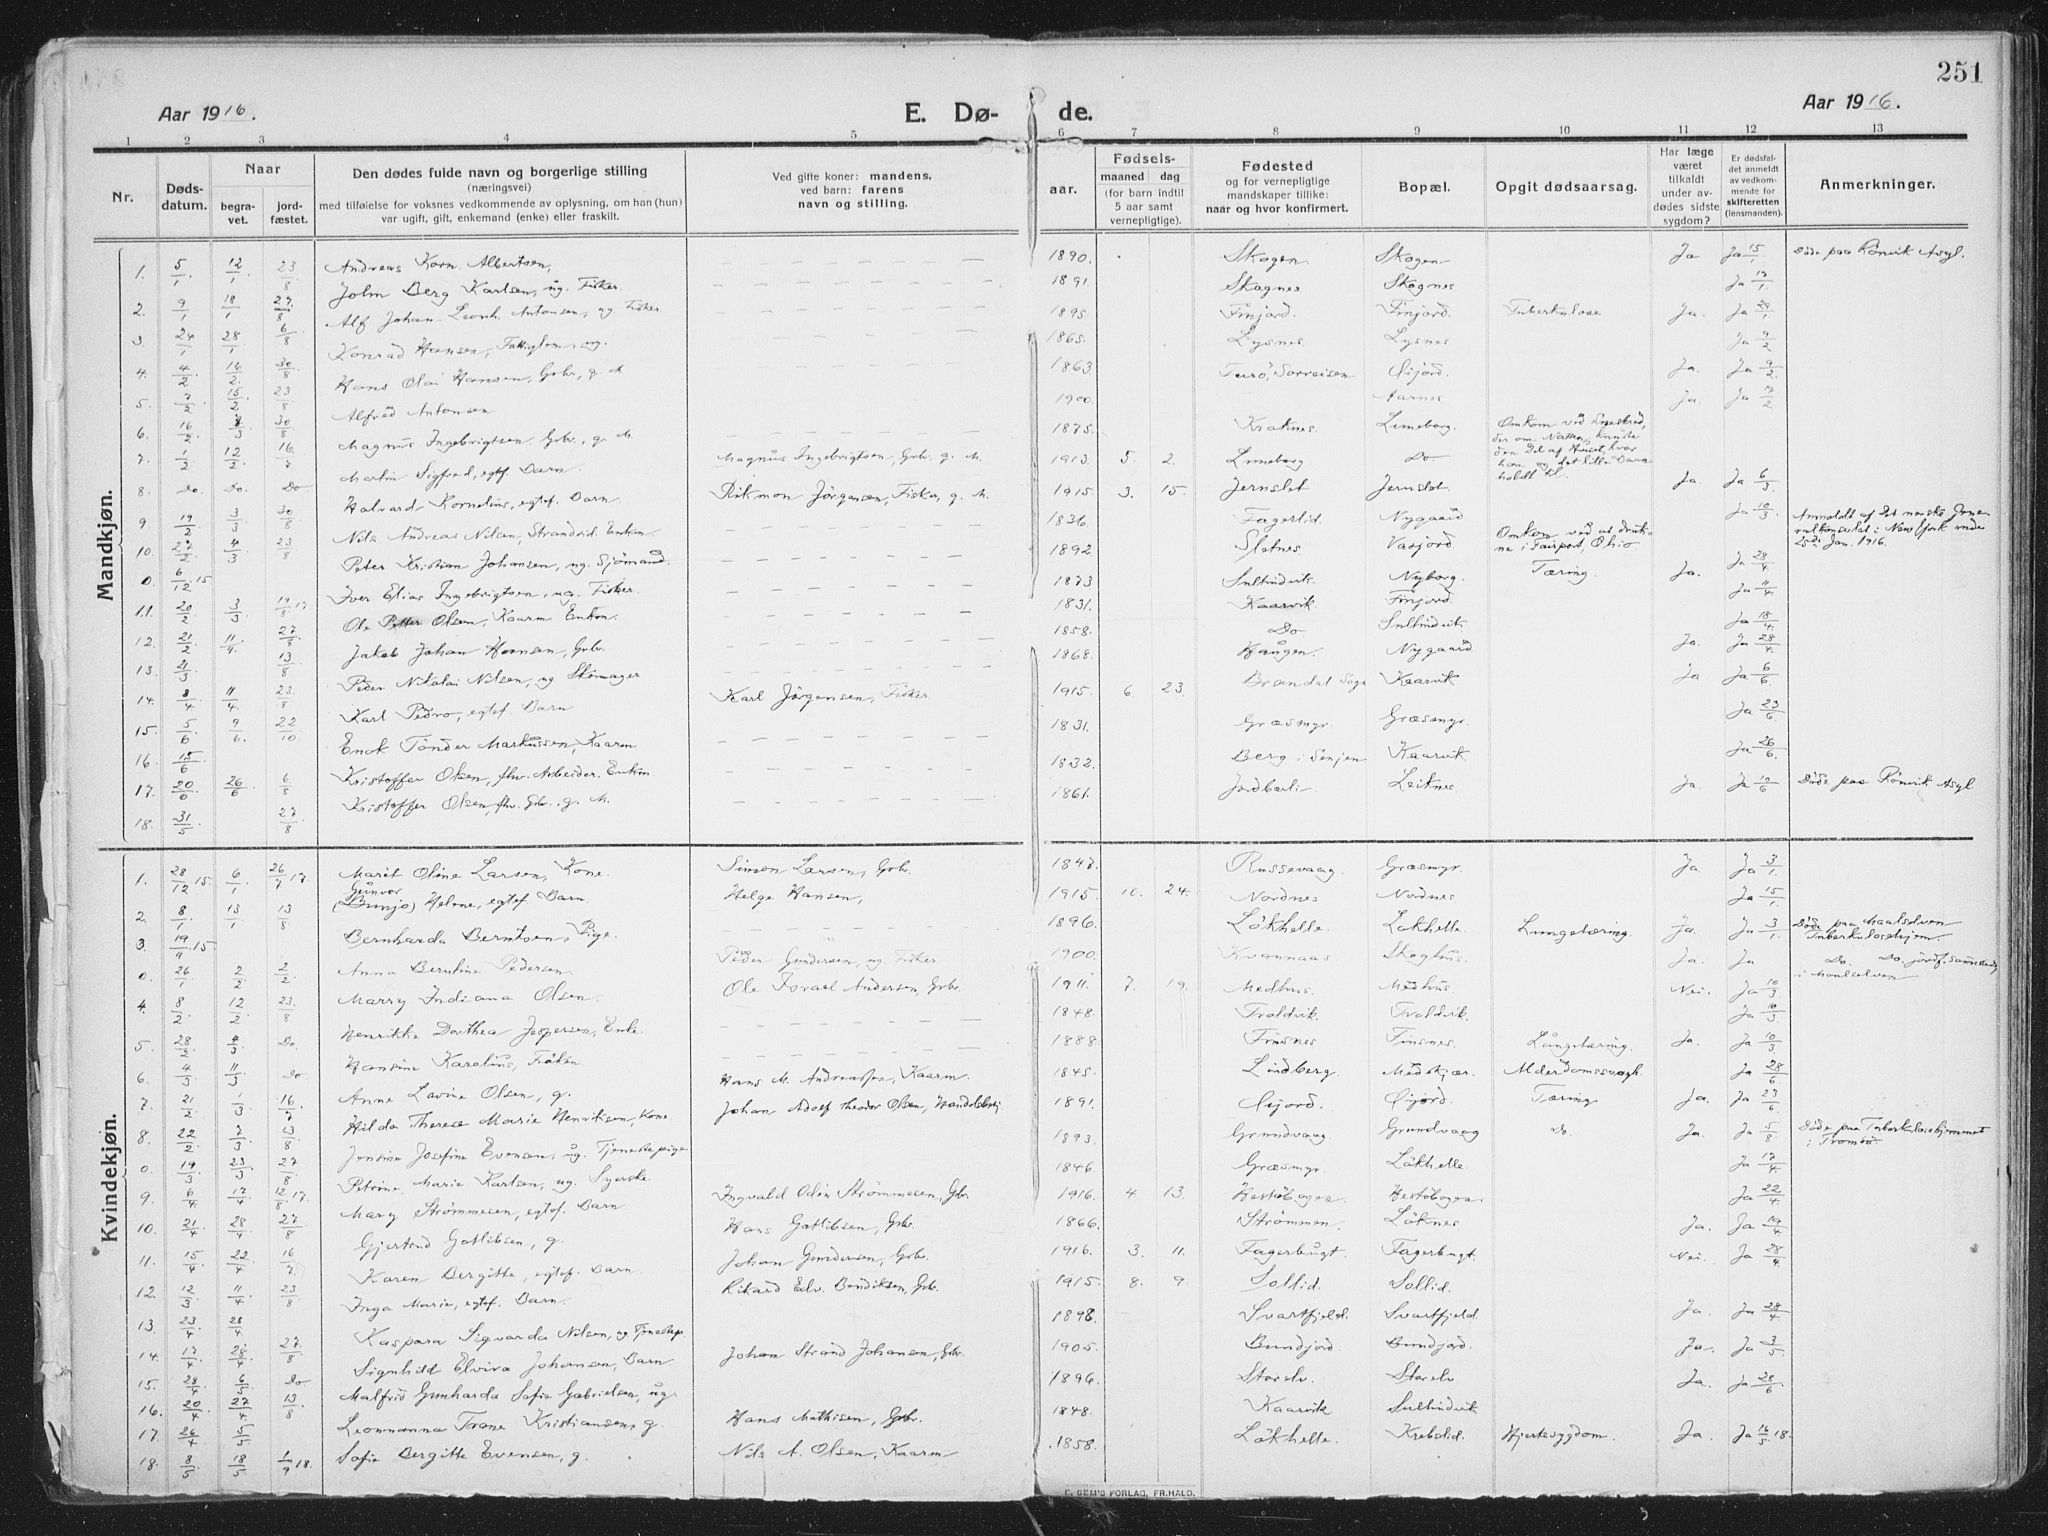 251
Aar 1916.
E. Dø-
de.
Aar 1916.
1 2 3 4 5 6 7 8 9 10 11 12 13
Nr.
Døds-
datum.
Naar
begra-
vet.
jord-
fæstet.
Den dødes fulde navn og borgerlige stilling
(næringsvei)
med tilføielse for voksnes vedkommende av oplysning, om han (hun)
var ugift, gift, enkemand (enke) eller fraskilt.
Ved gifte koner: mandens,
ved barn: farens
navn og stilling.
aar.
Fødsels-
maaned dag
(for barn indtil
5 aar samt
vernepligtige).
Fødested
og for vernepligtige
mandskaper tillike:
naar og hvor konfirmert.
Bopæl.
Opgit dødsaarsag.
Har læge
været
tilkaldt
under av-
dødes sidste
sygdom?
Er dødsfal-
det anmeldt
av vedkom-
mende for
skifteretten
(lensmanden).
Anmerkninger.
Mandkjøn.
1. 5/1 12/1 23/8 Andreas Korn. Albertsen, 1890. Skogen Skogen Ja Ja 15/1 Døde paa Rønvik Asyl.
2. 9/1 18/1 27/8 John Berg Karlsen, ug. Fisker. 1891. Skognes Skognes Ja 17/1
3 24/1 28/1 6/8 Alf Johan Leonh. Antonsen, ug Fisker 1895 Finjord. Finjord. Tuberkulose Ja. Ja 29/1
4. 4/2 16/2. 30/8 Konrad Hansen, Fattiglem, ug. 1865. Lysnes Lysnes Ja 9/2
5. 7/2 15/2 23/8 Hans Olai Hansen, Grbr, g. M 1863. Turö, Sorreisen Ja. Ja 9/2
6. 16/2 7/3 30/8 Alfred Antonsen 1900. Aarnes Ja. Ja 17/2
7. 1/2 12/2 16/7 Magnus Ingebrigtsen, Grbr., g. M. 1875. Kraknes Lemeborg. Omkom ved Sneskred,
8. Do. Do. Do Martin Sigfred, egtef. Barn. Magnus Ingebrigtsen, Grbr. g. M. 1913. 5 2. Do
9 19/2 3/3 30/8 Halvard Kornelius, egtef. Barn. Rikmon Jörgensen, Fisker, g. M. 1915. 3. 15. Jernslet Jernslet. Ja. Ja 6/3
10. 27/2 4/3 23/8 Nils Andreas Nilsen, Strandsid. Enkem 1836. Fagerlid. Nygaard Ja 10/3
0. 6/12.15 Peter Kristian Johansen, ug. Sjömand. 1892. Sletnes Vasjord Omkom ved at drukne i Fairport, Ohio Anmeldt af Det norske Generalkonsulat i New York under 25de Jan. 1916.
11. 20/2 3/3 19/8 17 Iver Elias Ingebrigtsen, ug. Fisker. 1873 Sultindvik. Nyborg. Tæring. Ja. Ja 28/4
12. 21/2 11/4. 27/8 Ole Petter Olsen, Kaarm Enkem. 1831. Kaarvik. Finjord. Ja 11/4.
13. 21/3 13/8 Jakob Johan Hansen, Grbr. 1858. Do. Sultindvik. Ja 18/4.
14. 8/4. 11/4. 23/8 Peder Nikolai Nilsen, ug Skomager 1868. Haugen. Nygaard Ja. Ja 28/4.
15. 5/6 9/6. 22/10 Karl Pedro, egtef. Barn Karl Jörgensen, Fisker. 1915. 6. 23. Kaarvik Ja. Ja 6/6
16. 15/6 Enok Tönder Markussen, Kaarm 1831. Græsmyr. Græsmyr. Ja 23/6.
17. 20/6 26/6 6/8 Kristoffer Olsen, fhv. Arbeider. Enkm 1832. Berg i Senjen Kaarvik. Ja 26/6.
18. 31/5 27/8 Kristoffer Olsen, fhv. Grbr., g. M. 1861. Jordbærli Leiknes Ja. Ja 10/6 Døde paa Rønvik Asyl.
Kvindekjøn.
1. 28/12 15. 6/1 26/7 17 Marit Oline Larsen, Kone Simon Larsen, Grbr. 1847. Russevaag. Græsmyr. Ja. Ja 3/1.
2. 8/1 13/1 13/8 Gunvor (Bunjo) Helene, egtef Barn. Helge Hansen, 1915. 10. 24. Nordnes Nordnes Ja 15/1.
3. 19/11.15. Bernharda Berntsen, Pige. 1896. Lökhelle. Lökhelle. Lungetæring. Ja. Ja 3/1. Døde paa Maalselven Tuberkulosehjem.
0. 26/1 2/2 2/2 Anna Beruline Pedersen. Peder Gundersen, ug Fisker 1900. Kvannaas Skoghus. Ja. Ja Do. Do. jordf. sammesteds i Maalselven
4. 8/2 12/2 23/8 Marry Indiana Olsen. Ole Israel Andersen, Grbr. 1911. 7. 19. Medhus Medhus Nei. Ja 10/3.
5. 28/2 4/3 Do. Henrikke Dorthea Jespersen, Enke. 1848. Troldvik. Troldvik. Ja 10/3
6. 4/3 11/3 Do Hansine Karolius, Fröken 1888. Finsnes Finsnes. Lungetæring. Ja. Ja 10/3.
7. 21/2 1/3 16/7 Anne Lavine Olsen, g. Hans M. Andreassen, Kaarm. 1845. Lindberg. Medskjær. Alderdomssvagh. Ja 28/6
8. 22/2 7/3 13/8 Hilda Therese Marie Henriksen, Kone Johan Adolf Theodor Olsen, Handelsbetj 1891. Tæring Ja. Ja 23/6.
0. 19/3 23/3 27/8 Jensine Josefine Evensen, ug. Tjenestepige 1893. Grundvaag Grundvaag Do. Ja. Ja 5/8. Døde paa Tuberkulosehjemmet i Tromsö.
9. 6/4. 17/4 12/8 17. Petrine Marie Karlsen, ug. Syerske. 1846. Græsmyr. Lökhelle. Ja 17/4.
10. 21/4 28/4 27/8 Mary Strömmesen, egtef. Barn. Ingvald Odin Strömmesen, Gbr. 1916. 4 13. Hestöbogen Hestöbogen Ja 22/4.
11. 15/4 22/4 16/7 Gjertrud Gotlibsen, g. Hans Gotlibsen, Grbr. 1866. Strömmen. Löknes. Ja. Ja 19/4
12. 12/3 11/4 23/8 Karen Bergitte, egtef. Barn. Johan Gundersen, Grbr. 1916. 3. 11. Fagerbugt. Fagerbugt Nei. Ja 28/4.
13. 23/4. 28/4. Inga Marie, egtef. Barn. Rikard Edv. Bendiksen, Grbr. 1915. 8. 9. Sollid. Sollid.
14. 17/4 28/4 27/8 Kaspara Sigvarda Nilsen, ug Tjenestep. 1898. Svartfjeld. Svartfjeld Ja. Ja 28/4
15. 28/4 6/5 Do Signhild Elvira Johansen, Barn. Johan Strand Johansen, Gbr. 1905. Bundjord. Bundjord. Ja. Ja 3/5
16. 20/4 27/4 13/8 Malfrid Gunharda Sofie Gabrielsen, ug. 1896. Storelv Storelv. Ja. Ja 28/6
17. 26/4 5/5 Leonnanna Trane Kristiansen, g. Hans Mathisen, Grbr. 1848. Kaarvik Sultindvik
18. 8/5 18/5 1/9 18. Sofie Bergitte Evensen, g. Nils A. Olsen, Kaarm 1858. Lökhelle. Krebslid. Hjertesygdom. Ja. Ja 16/5 18.
E. SEM'S FORLAG, FR.HALD.